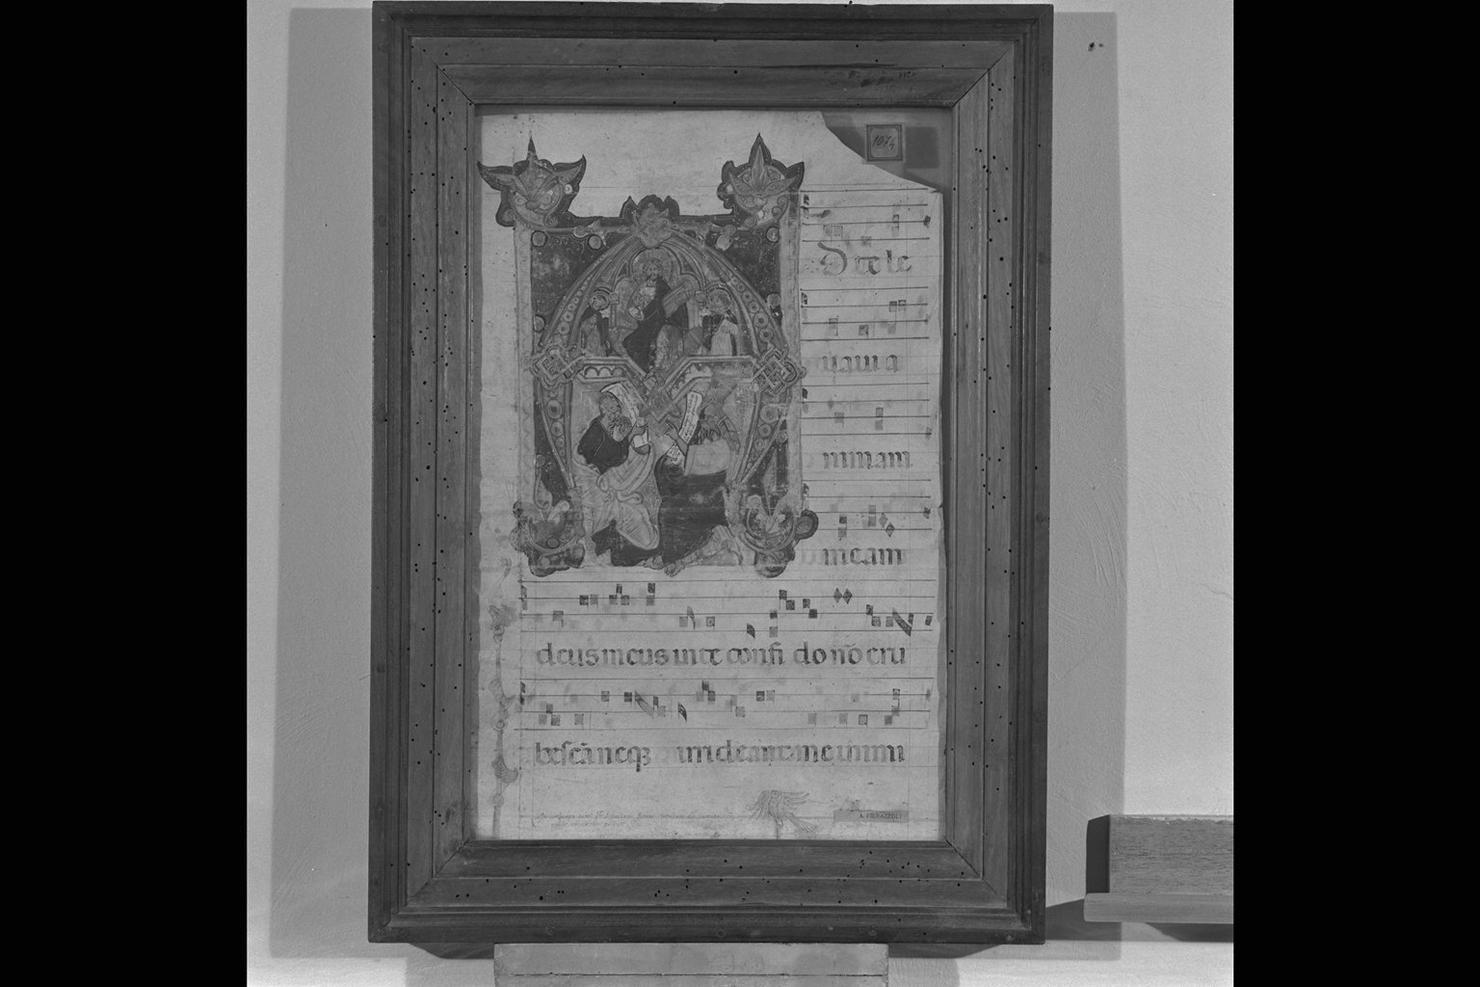 107 4
D te le
uaui a
nimam
meam
deus meus in te confi do nō eru
bescā neqꝫ irrideant me inimi
A. PIERAZZOLI